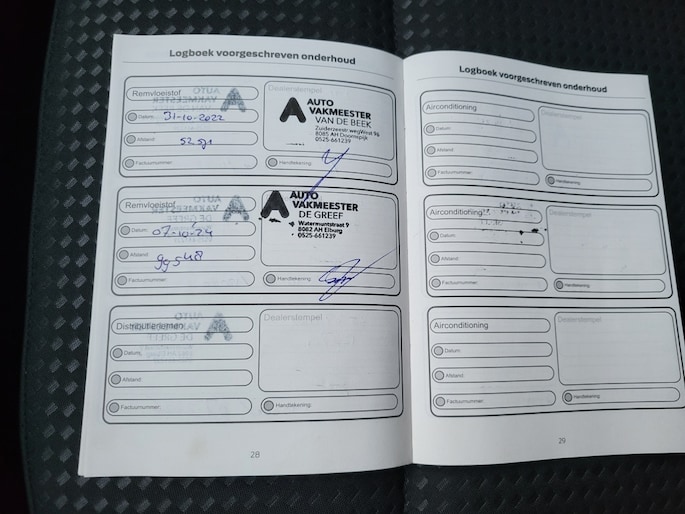 Logboek voorgeschreven onderhoud
Remvloeistof
Datum: 31-10-2022
Afstand:
Factuurnummer:
Dealerstempel
AUTO
VAKMEESTER
VAN DE BEEK
Zuiderzeestr wegWest 96
8085 AH Doornspijk
0525-661239
Handtekening:
Remvloeistof
Datum: 07-10-'24
Afstand: 99548
Factuurnummer:
AUTO
VAKMEESTER
DE GREEF
Watermuntstraat 9
8082 AH Elburg
0525-661239
Handtekening:
Distributieriemen
Datum:
Afstand:
Factuurnummer:
Dealerstempel
Handtekening:
28
Logboek voorgeschreven onderhoud
Airconditioning
Datum:
Afstand:
Factuurnummer:
Dealerstempel
Handtekening:
Airconditioning
Datum:
Afstand:
Factuurnummer:
Dealerstempel
Handtekening:
Airconditioning
Datum:
Afstand:
Factuurnummer:
Dealerstempel
Handtekening:
29